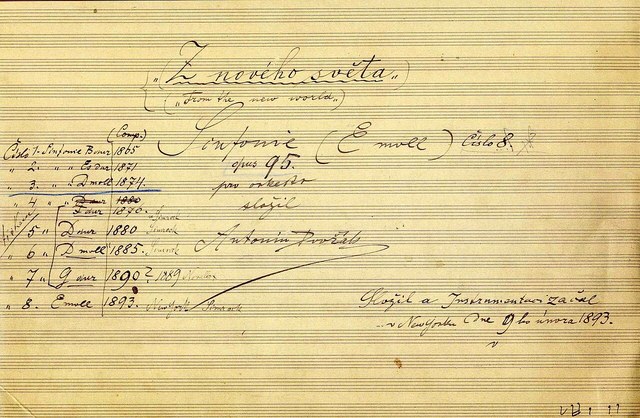 „Z nového světa„
(„From the new world„)
Sinfonie (E moll) Číslo 8.
opus 95.
pro orkestr
složil
Antonín Dvořák
(Comp.)
Číslo 1. Sinfonie B dur 1865
„ 2. „ „ Es dur 1871
„ 3. „ „ D moll 1874.
„ 4 „ „ D dur 1880
F dur 1870.
„ 5 „ D dur 1880
„ 6 „ D moll 1885.
„ 7 „ G dur 1890? 1889
„ 8. E moll 1893. New York Simrock
Složil a Instrumentaci začal
v New Yorku dne 9ho února 1893.